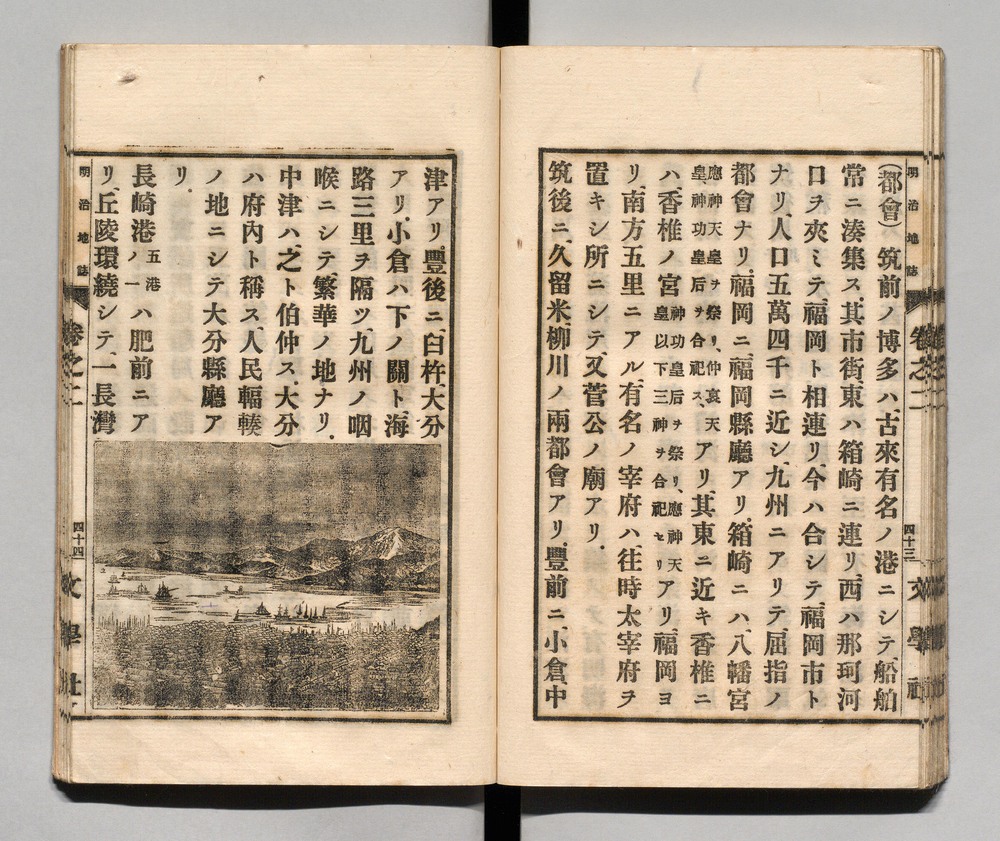 明治地誌
卷之二
四十三
文學社
(都會)筑前ノ博多ハ、古來有名ノ港ニシテ、船舶
常ニ湊集ス、其市街、東ハ箱崎ニ連リ、西ハ那珂河
口ヲ夾ミテ、福岡ト相連リ、今ハ合シテ福岡市ト
ナリ、人口五萬四千ニ近シ、九州ニアリテ屈指ノ
都會ナリ、福岡ニ福岡縣廳アリ、箱崎ニハ、八幡宮
應神天皇ヲ祭リ、仲哀天
皇、神功皇后ヲ合祀ス、
アリ、其東ニ近キ香椎ニ
ハ、香椎ノ宮
神功皇后ヲ祭リ、應神天
皇以下三神ヲ合祀セリ
アリ、福岡ヨ
リ、南方五里ニアル有名ノ宰府ハ往時太宰府ヲ
置キシ所ニシテ、又菅公ノ廟アリ.
筑後ニ、久留米、柳川ノ兩都會アリ、豐前ニ、小倉、中
津アリ、豐後ニ、臼杵、大分
アリ、小倉ハ下ノ關ト海
路三里ヲ隔ツ、九州ノ咽
喉ニシテ繁華ノ地ナリ.
中津ハ、之ト伯仲ス、大分
ハ府内ト稱ス、人民輻輳
ノ地ニシテ大分縣廳ア
リ.
長崎港
五港
ノ一
ハ肥前ニア
リ、丘陵環繞シテ、一長灣
明治地誌
卷之二
四十四
文學社